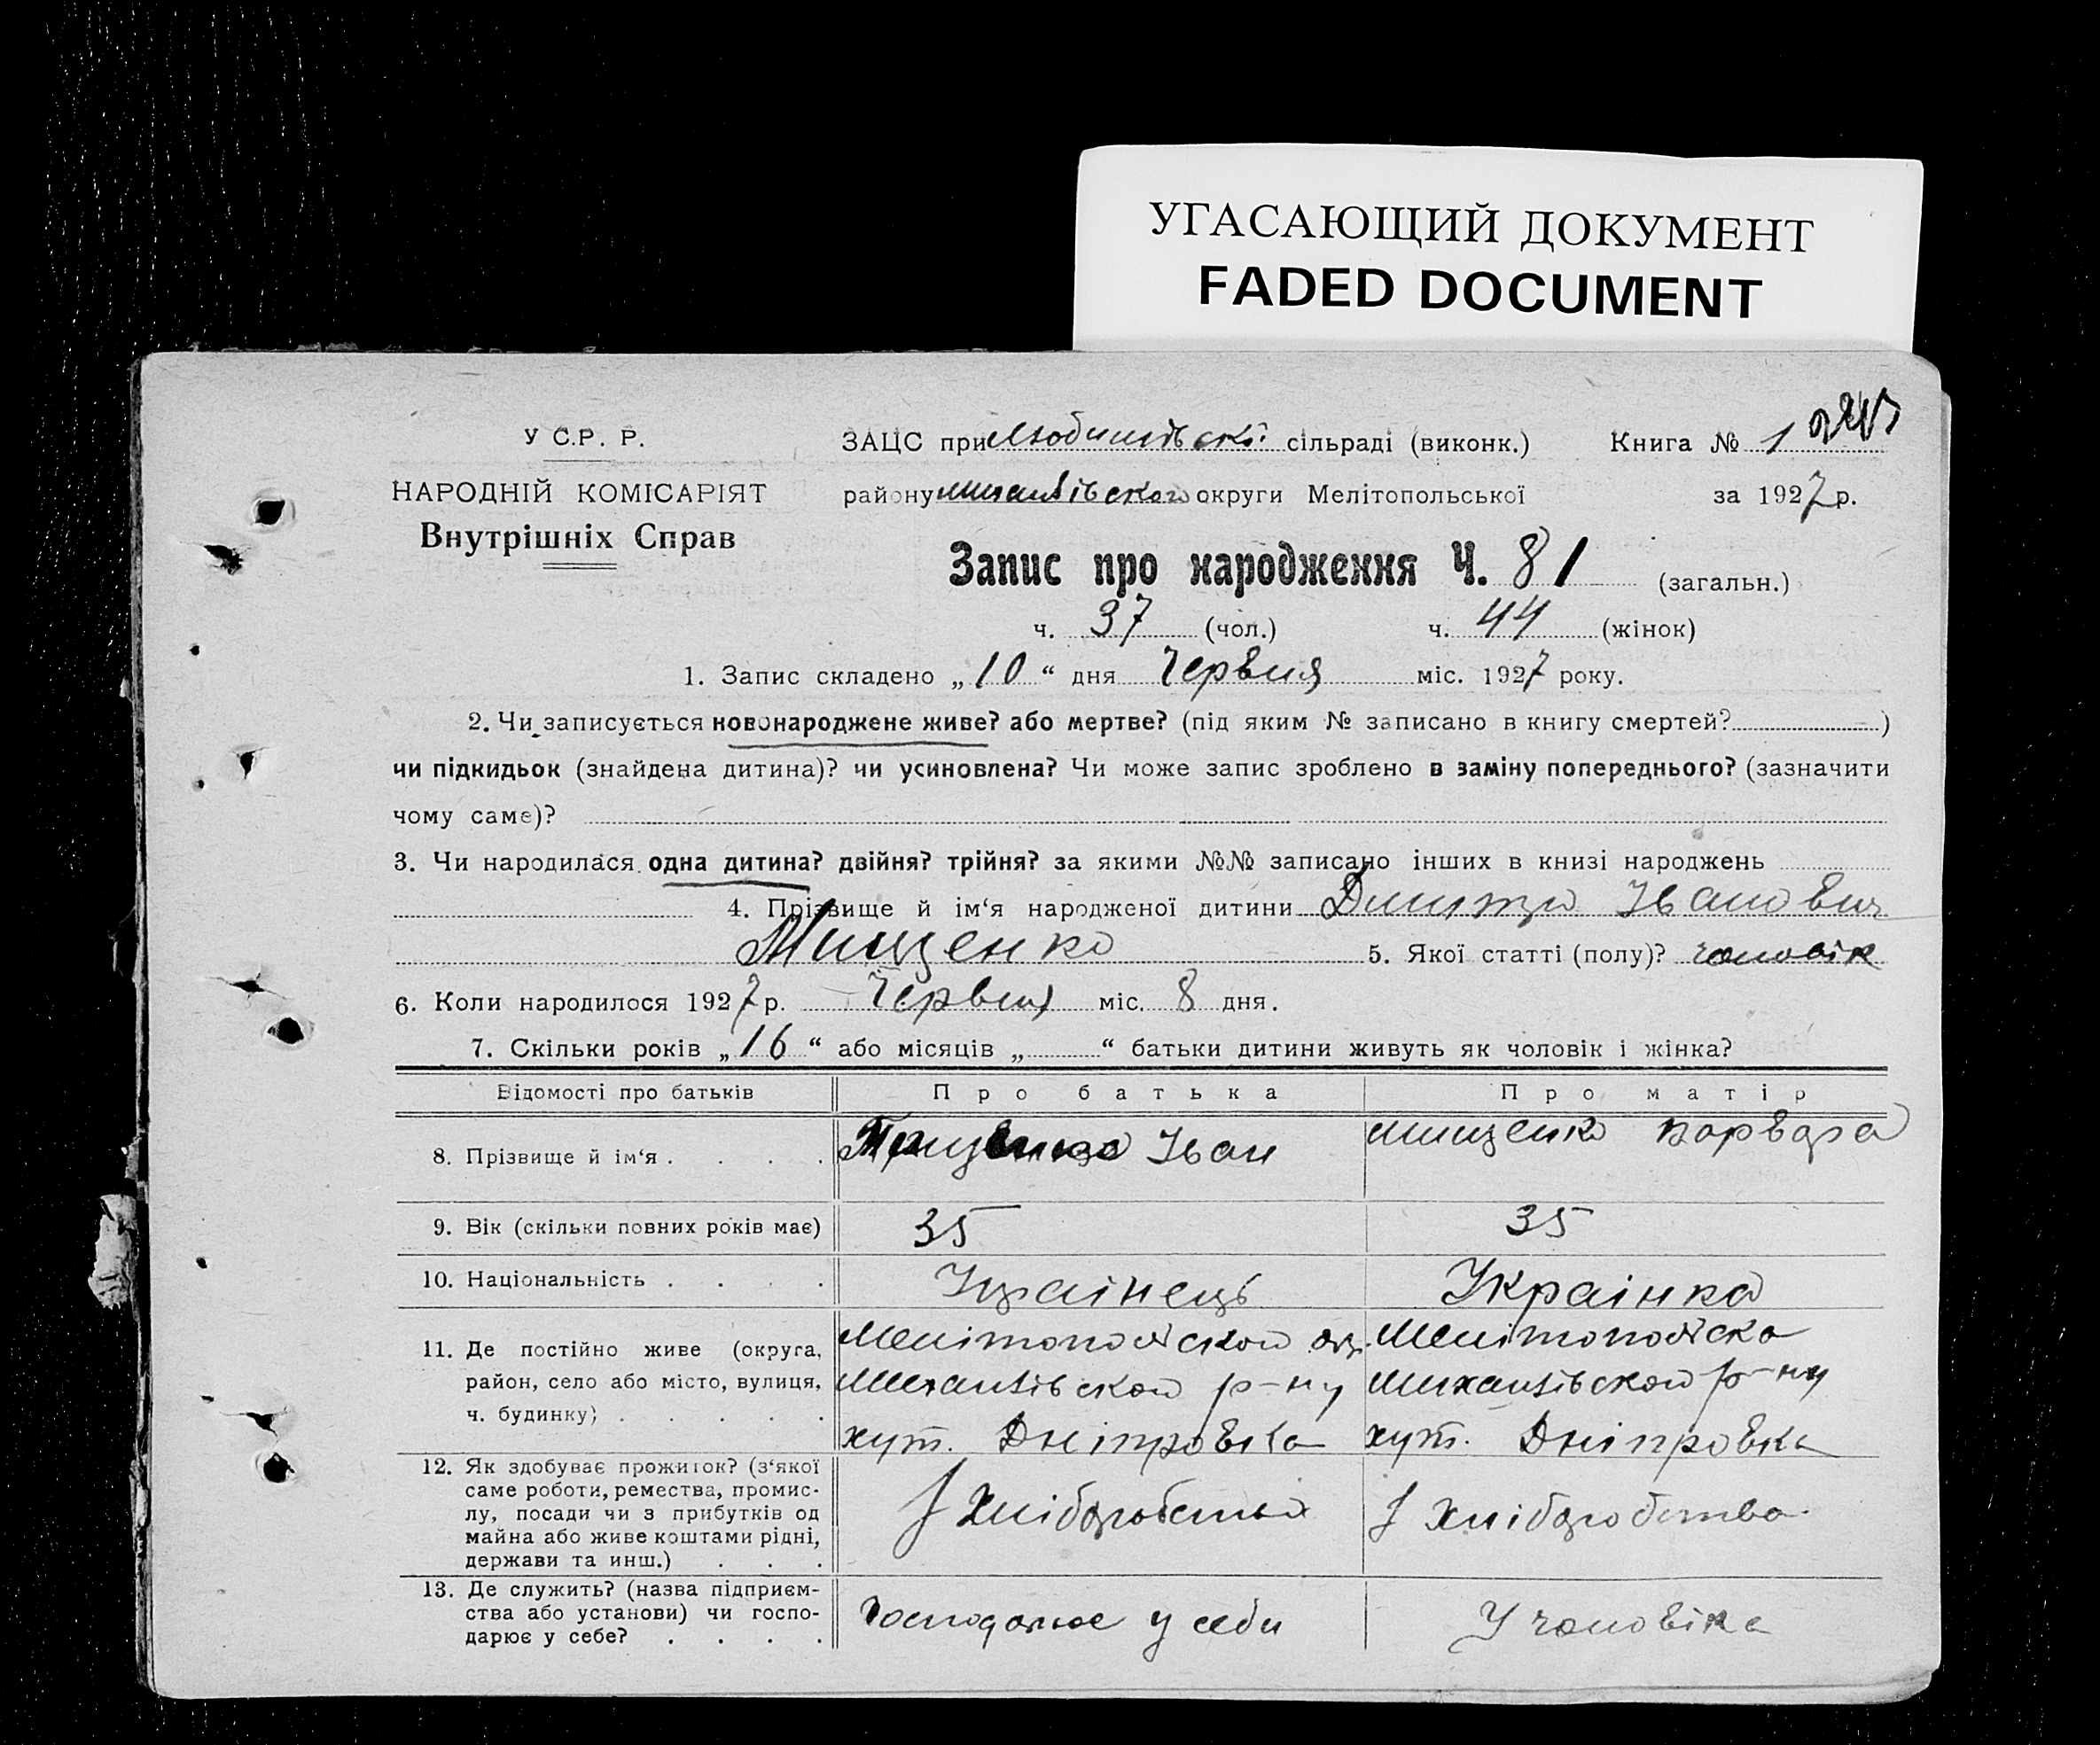 УГАСАЮЩИЙ ДОКУМЕНТ
FADED DOCUMENT
У С.Р. Р.
НАРОДНІЙ КОМІСАРІЯТ
Внутрішніх Справ
ЗАЦС при Любимівській сільраді (виконк.) Книга № 1
району Михайлівського округи Мелітопольської за 1927 р.
Запис про народження Ч. 81 (загальн.)
ч. 37 (чол.) ч. 44 (жінок)
1. Запис складено „10“ дня Червня міс. 1927 року.
2. Чи записується новонароджене живе? або мертве? (під яким № записано в книгу смертей? )
чи підкидьок (знайдена дитина)? чи усиновлена? Чи може запис зроблено в заміну попереднього? (зазначити
чому саме)?
3. Чи народилася одна дитина? двійня? трійня? за якими №№ записано інших в книзі народжень
4. Прізвище й ім‘я народженої дитини Дмитро Іванович
Мищенко 5. Якої статті (полу)? чоловік
6. Коли народилося 1927 р. Червня міс. 8 дня.
7. Скільки років „16“ або місяців „ “ батьки дитини живуть як чоловік і жінка?
Відомості про батьків Про батька Про матір
8. Прізвище й ім‘я . . . . Мищенко Іван Мищенко Варвара
9. Вік (скільки повних років має) 35 35
10. Національність . . . . Українець Украінка
11. Де постійно живе (округа, Мелітопольскои окр. Мелітопольска
район, село або місто, вулиця, Михайлівскои р-ну Михайлівскои р-ну
ч. будинку) . . . . . хут. Дніпровка хут. Дніпровка
12. Як здобуває прожиток? (з‘якої
саме роботи, ремества, промис-
лу, посади чи з прибутків од З хліборобства З хліборобства
майна або живе коштами рідні,
держави та инш.) . . .
13. Де служить? (назва підприєм-
ства або установи) чи госпо- Господарює у себи У чоловіка
дарює у себе? . . . .